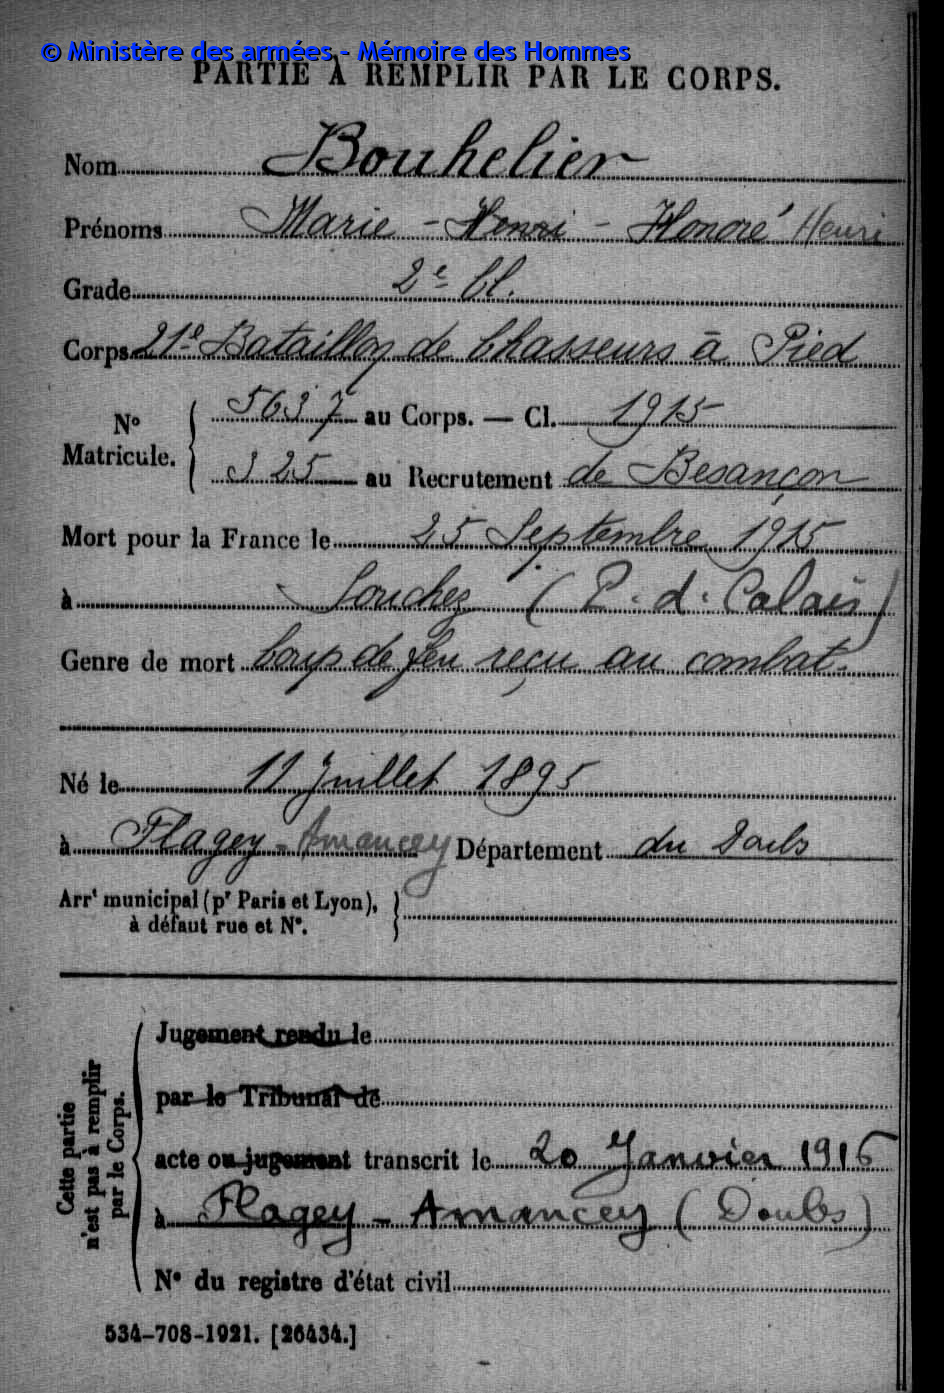 © Ministère des armées - Mémoire des Hommes
PARTIE À REMPLIR PAR LE CORPS.
Nom Bouhelier
Prénoms Marie - Henri - Honoré Henri
Grade 2e Cl.
Corps 21e Bataillon de Chasseurs à Pied
No Matricule. { 5637 au Corps. — Cl. 1915
325 au Recrutement de Besançon
Mort pour la France le 25 Septembre 1915
à Souchez (P. d. Calais)
Genre de mort Coup de feu reçu au combat.
Né le 11 Juillet 1895
à Flagey - Amancey Département du Doubs
Arrt municipal (pr Paris et Lyon),
à défaut rue et No.
Cette partie n'est pas à remplir par le Corps.
Jugement rendu le
par le Tribunal de
acte ou jugement transcrit le 20 Janvier 1916
à Flagey - Amancey (Doubs)
No du registre d'état civil
534-708-1921. [26434.]